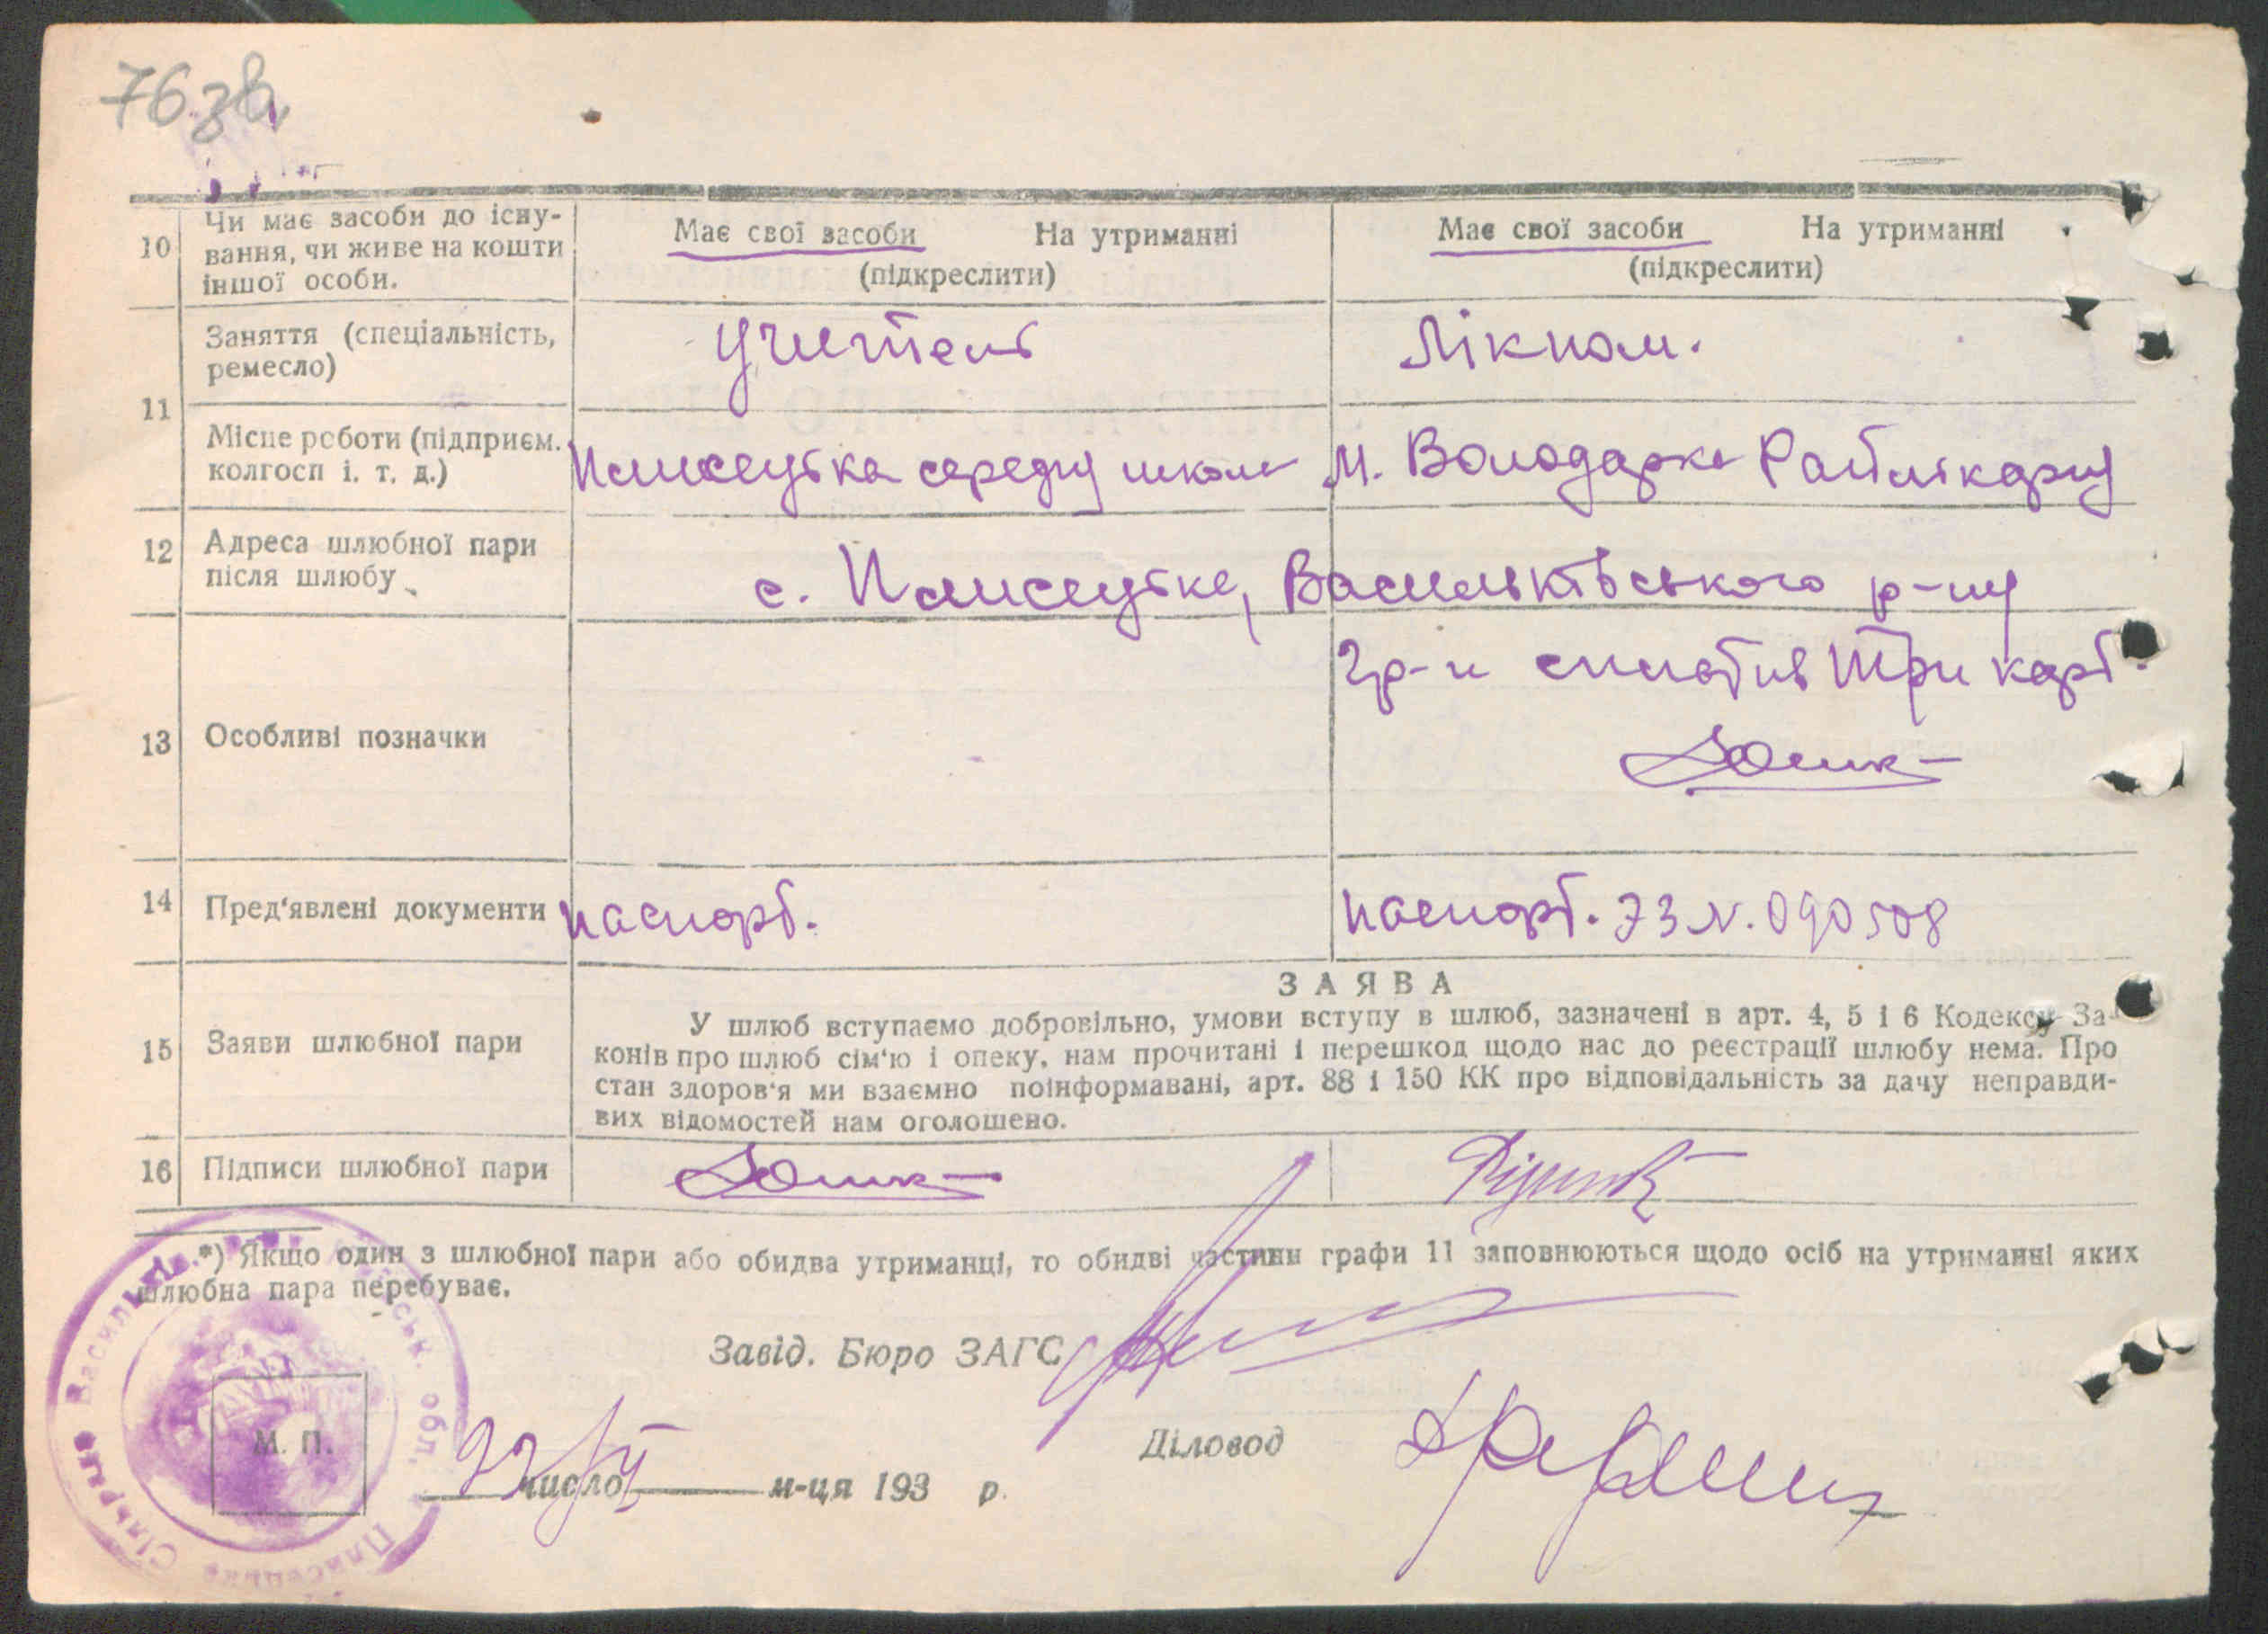 76 зв.
10
Чи має засоби до існу-
вання, чи живе на кошти
іншої особи.
Має свої засоби На утриманні
(підкреслити)
Має свої засоби На утриманні
(підкреслити)
11
Заняття (спеціальність,
ремесло)
Учитель
Лікпом.
Місце роботи (підприєм.
колгосп і. т. д.)
Плисецька середня школа
М. Володарка Райлікарня
12
Адреса шлюбної пари
після шлюбу
с. Плисецьке, Васильківського р-ну
13
Особливі позначки
Гр-н сплатив три карб.
14
Пред'явлені документи
паспорт.
паспорт. 73 N. 090508
15
Заяви шлюбної пари
ЗАЯВА
У шлюб вступаємо добровільно, умови вступу в шлюб, зазначені в арт. 4, 5 і 6 Кодексу За-
конів про шлюб сім'ю і опеку, нам прочитані і перешкод щодо нас до реєстрації шлюбу нема. Про
стан здоров'я ми взаємно поінформавані, арт. 88 і 150 КК про відповідальність за дачу неправди-
вих відомостей нам оголошено.
16
Підписи шлюбної пари
*) Якщо один з шлюбної пари або обидва утриманці, то обидві частини графи 11 заповнюються щодо осіб на утриманні яких
шлюбна пара перебуває.
Завід. Бюро ЗАГС
М. П.
число м-ця 193 р.
Діловод
Плисецька Сільрада Васильків
обл.